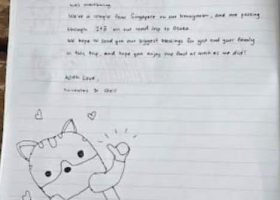 was overwhelming.
We're a couple from Singapore on our honeymoon, and are passing
through on our road trip to Osaka.
We hope to send you our biggest blessings for you and your family
in this trip, and hope you enjoy the food as much as we did!
With love,
&